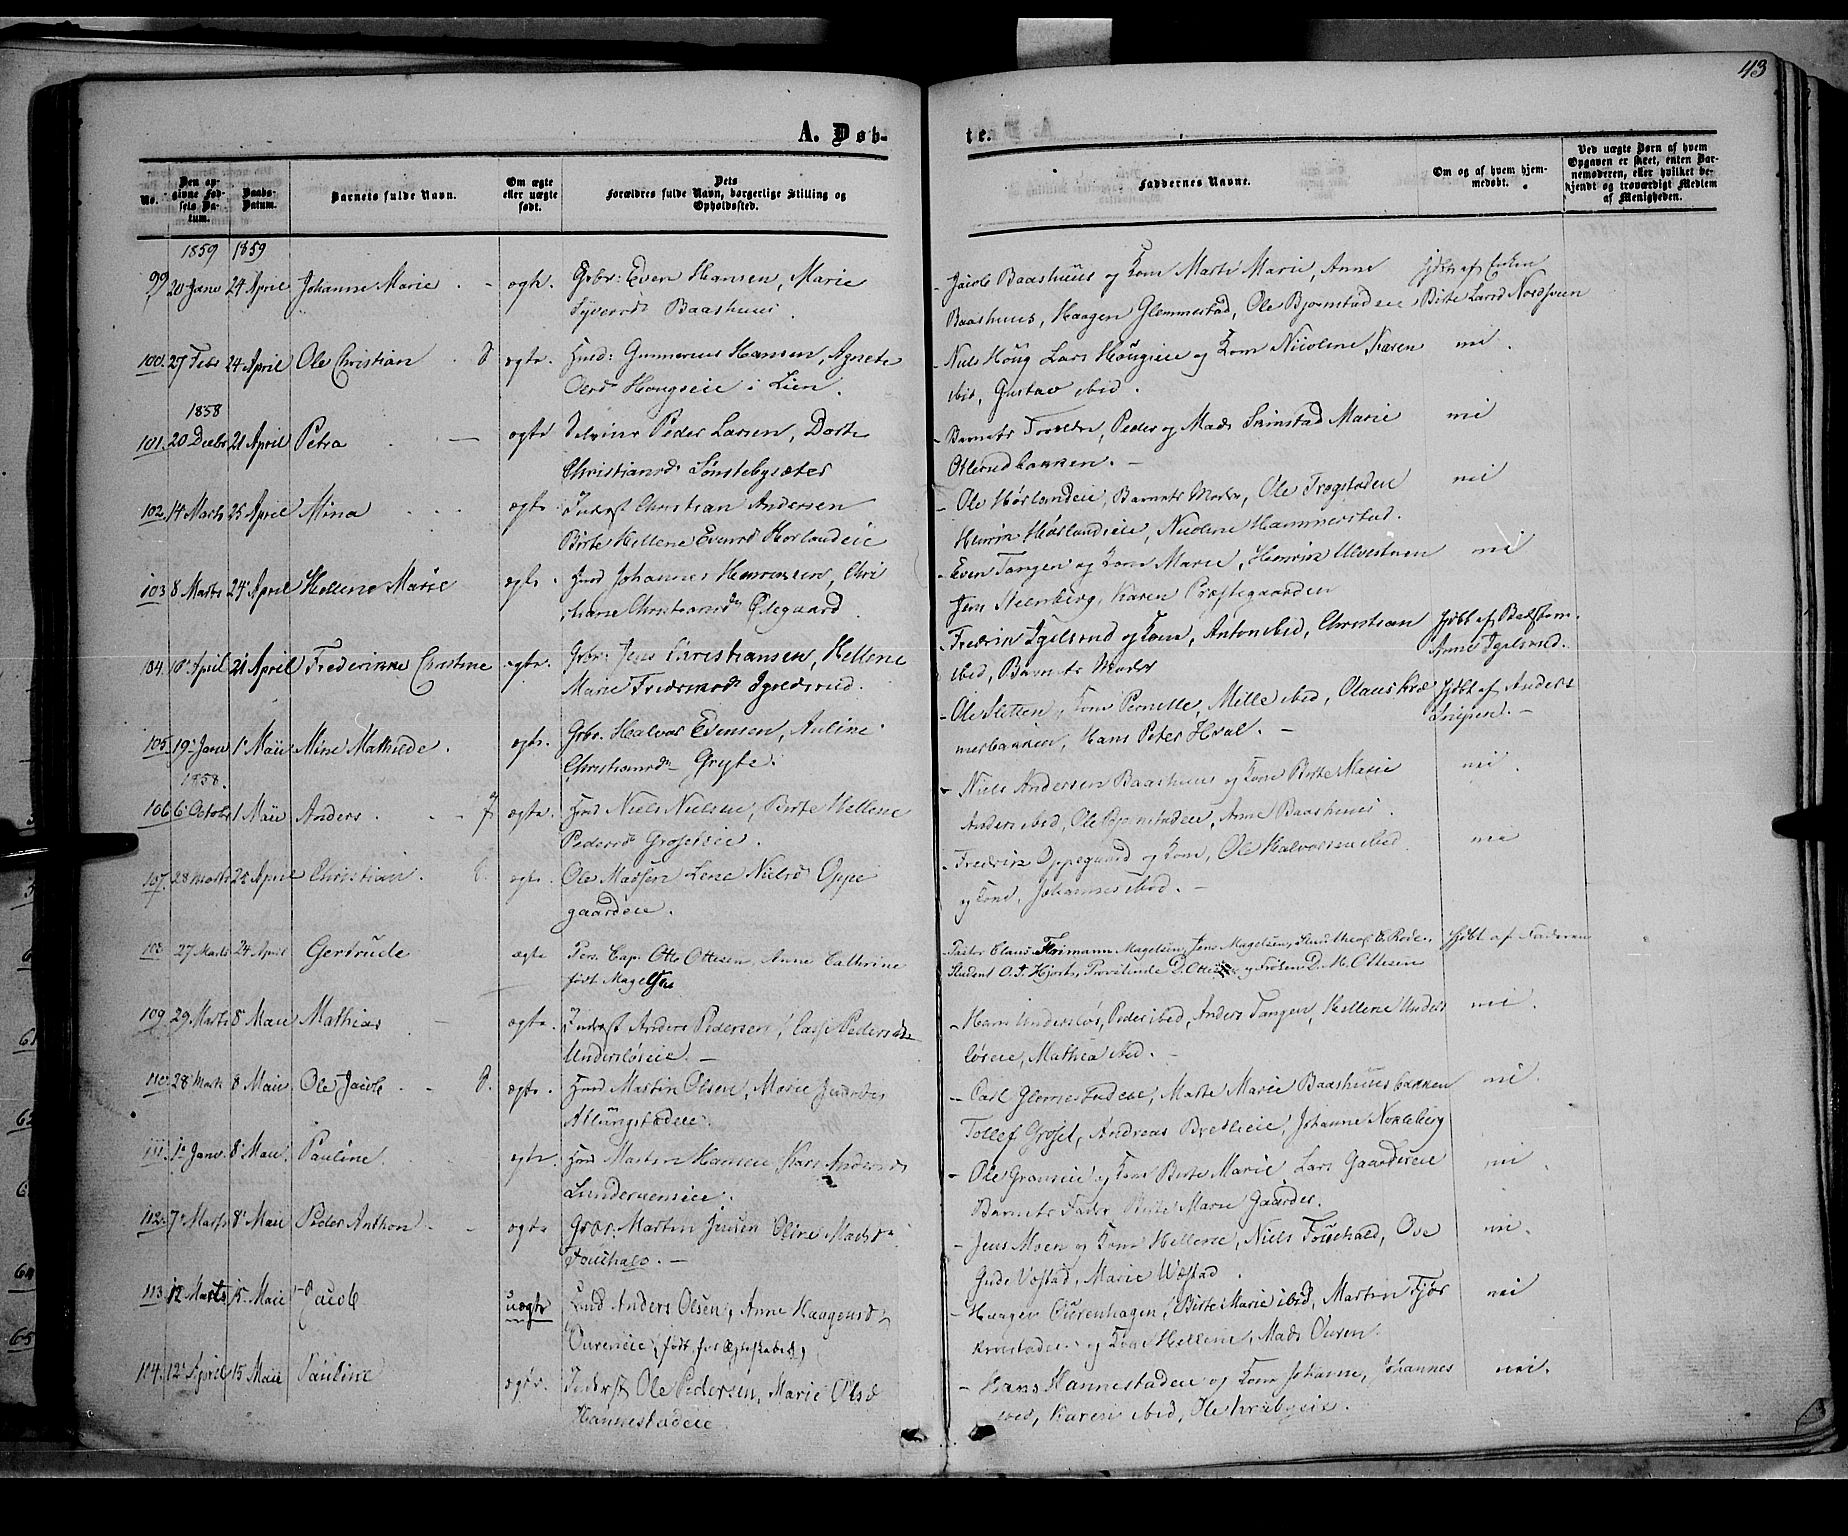 43
A. Døb-
te.
No.
Den opgivne Fødsels Datum.
Daabs-Datum.
Barnets fulde Navn.
Om ægte eller uægte født.
Dets Forældres fulde Navn, borgerlige Stilling og Opholdssted.
Faddernes Navne.
Om og af hvem hjemmedøbt.
Ved uægte Børn af hvem Opgaven er skeet, enten Barnemoderen, eller hvilket bekjendt og troværdigt Medlem af Menigheden.
1859 1859
99 20 Janv 24 April Johanne Marie ægte Grbr: Even Hansen, Marie
Syversd Baashuus.
- Jacob Baashuus og Kone Marte Marie, Anne
Baashuus, Haagen Glemmestad, Ole Bjørnstadeie
Birte Larsd Nordsveen
100. 27 Febr 24 April Ole Christian ægte. Huusm: Gunnerius Hansen, Agnete
Olsd Hougseie i Lien.
- Niels Houg Lars Hougseie og Kone Nicoline Karen
ibid, Gustav ibid. nei.
1858
101. 20 Decbr 21 April Petra ægte Peder Larsen, Dorte
Christiansd Sønstebysæter
- Barnets Forældre, Peder og Mads Skimstad Marie
Ottersudbakken. - nei
102. 14 Marts 25 April Mina ægte Inderst Christian Andersen
Birte Hellene Evensd Hørlandeie
- Ole Hørlandeie, Barnets Moder, Ole Trogstadeie
Henrik Hørlandseie, Nicoline Hammerstad. nei
103 8 Marts 24 April Hellene Marie ægte. Johannes Henriksen, Chri
stiane Christiansd Ødegaard.
- Even Tangen og Kone Marie, Henrik Ulvestuen
Jens Steenberg, Karen Præstegaarden nei
104. 10 April 21 April Frederikke Christine ægte. Grbr: Jens Christiansen, Hellene
Marie Frederiksd Igelsrud.
- Fredrik Igelsrud og Kone, Anton ibid, Christian
ibid, Barnets Moder
hjdbt af Bedstem.
Anne Igelsrud.
105. 19 Janv 1 Mai Mine Mathilde. ægte. Grbr. Halvor Evensen, Auline
Christiansd Gryte.
- Ole Sletten, Kone Pernille, Mille ibid, Olaus Kræ
merbakken, Hans Peter Hval. -
hjdbt af Anders
Snipen. -
1858.
106 6 Octobr 1 Mai Anders. ægte. Niels Nielsen, Birte Hellene
Pedersd Grøseteie.
- Niels Andersen Baashuus og Kone Birte Marie
Anders ibid, Ole Bjørnstadeie, Anne Baashuus. nei.
107. 28 Marts 25 April Christian. ægte. Ole Madsen Lene Nielsd Oppe
gaardeie.
- Fredrik Oppegaard og Kone, Ole Halvorsen ibid.
og Kone, Johannes ibid. - nei
108. 27 Marts 24 April Gertrude ægte Pers. Cap. Otto Ottesen, Anne Cathrine
født Magelsen
Pastor Claus Heimann Magelsen, Jens Magelsen, C. Rode,
Student O. T. Hjort, Provstinde D. Ottesen og Frøken D. M. Ottesen
hjdbt af Faderen
109. 29 Marts 8 Mai Mathias ægte. Inderst Anders Pedersen, Pedersd
Undersløseie. -
- Hans Undersløs, Peder ibid, Anders Tangen, Hellene Unders
løseie, Mathea ibid. - nei.
110. 28 Marts 8 Mai Ole Jacob ægte. Martin Olsen, Marie Jensd
Atlungstadeie.
- Carl Glemestadeie, Marte Marie Baashuusbakken
Tollef Grøset, Andreas Bretlieie, Johanne Nokleberg nei.
111. 1 Janv. 8 Mai. Pauline. ægte. Martin Hansen, Kari Andersd
Lunderuenseie.
- Ole Granseie og Kone Birte Marie Lars Gaarderseie
Barnets Fader Birte Marie Gaarder. nei.
112. 7 Marts 8 Mai Peder Anthon ægte Grbr. Martin Jensen Oline Madsd
Fouehald. -
- Jens Moen og Kone Hellene, Niels Fouehald, Ove
Gude Vøstad, Marie Wøstad. nei.
113. 12 Marts 15 Mai Jacob uægte Anders Olsen, Anne Haagensd
Oureneie, (født før Ægteskabet)
- Haagen Ourenhagen, Birte Marie ibid, Martin Fjør
kenstadeie og Kone Hellene, Mads Ouren. nei
114. 12 April 15 Mai Pauline ægte. Inderst Ole Pedersen, Marie Olsd
Hannestadeie
- Hans Hannestadeie og Kone Johanne, Johannes
ibid, Karen ibid, Ole Kræbyeie. nei.